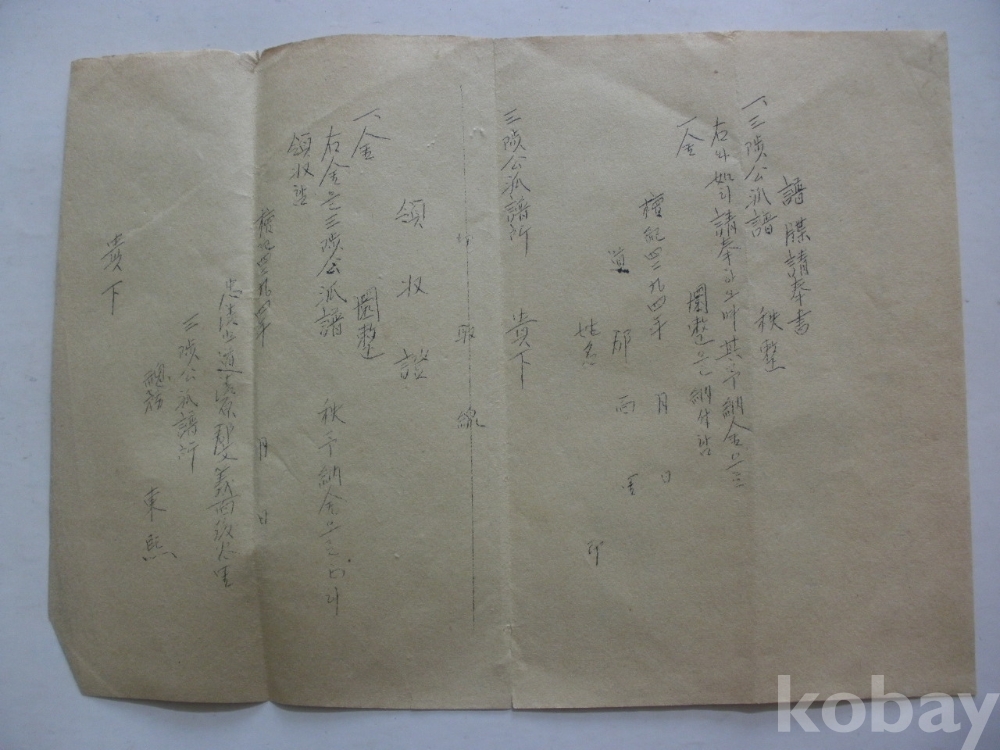 譜牒請奉書
一、三陟公派譜 秩整
右와 如히 請奉하오며 其 予納金으로
一金 圜整을 納付함
檀紀四二九四年 月 日
道 郡 面 里
姓名 印
三陟公派譜所 貴下
切取線
領收證
一金 圜整
右金은 三陟公派譜 秩予納金으로
領收함
檀紀四二九四年 月 日
忠淸北道淸原郡文義面後谷里
三陟公派譜所
總務 東熙
貴下
kobay